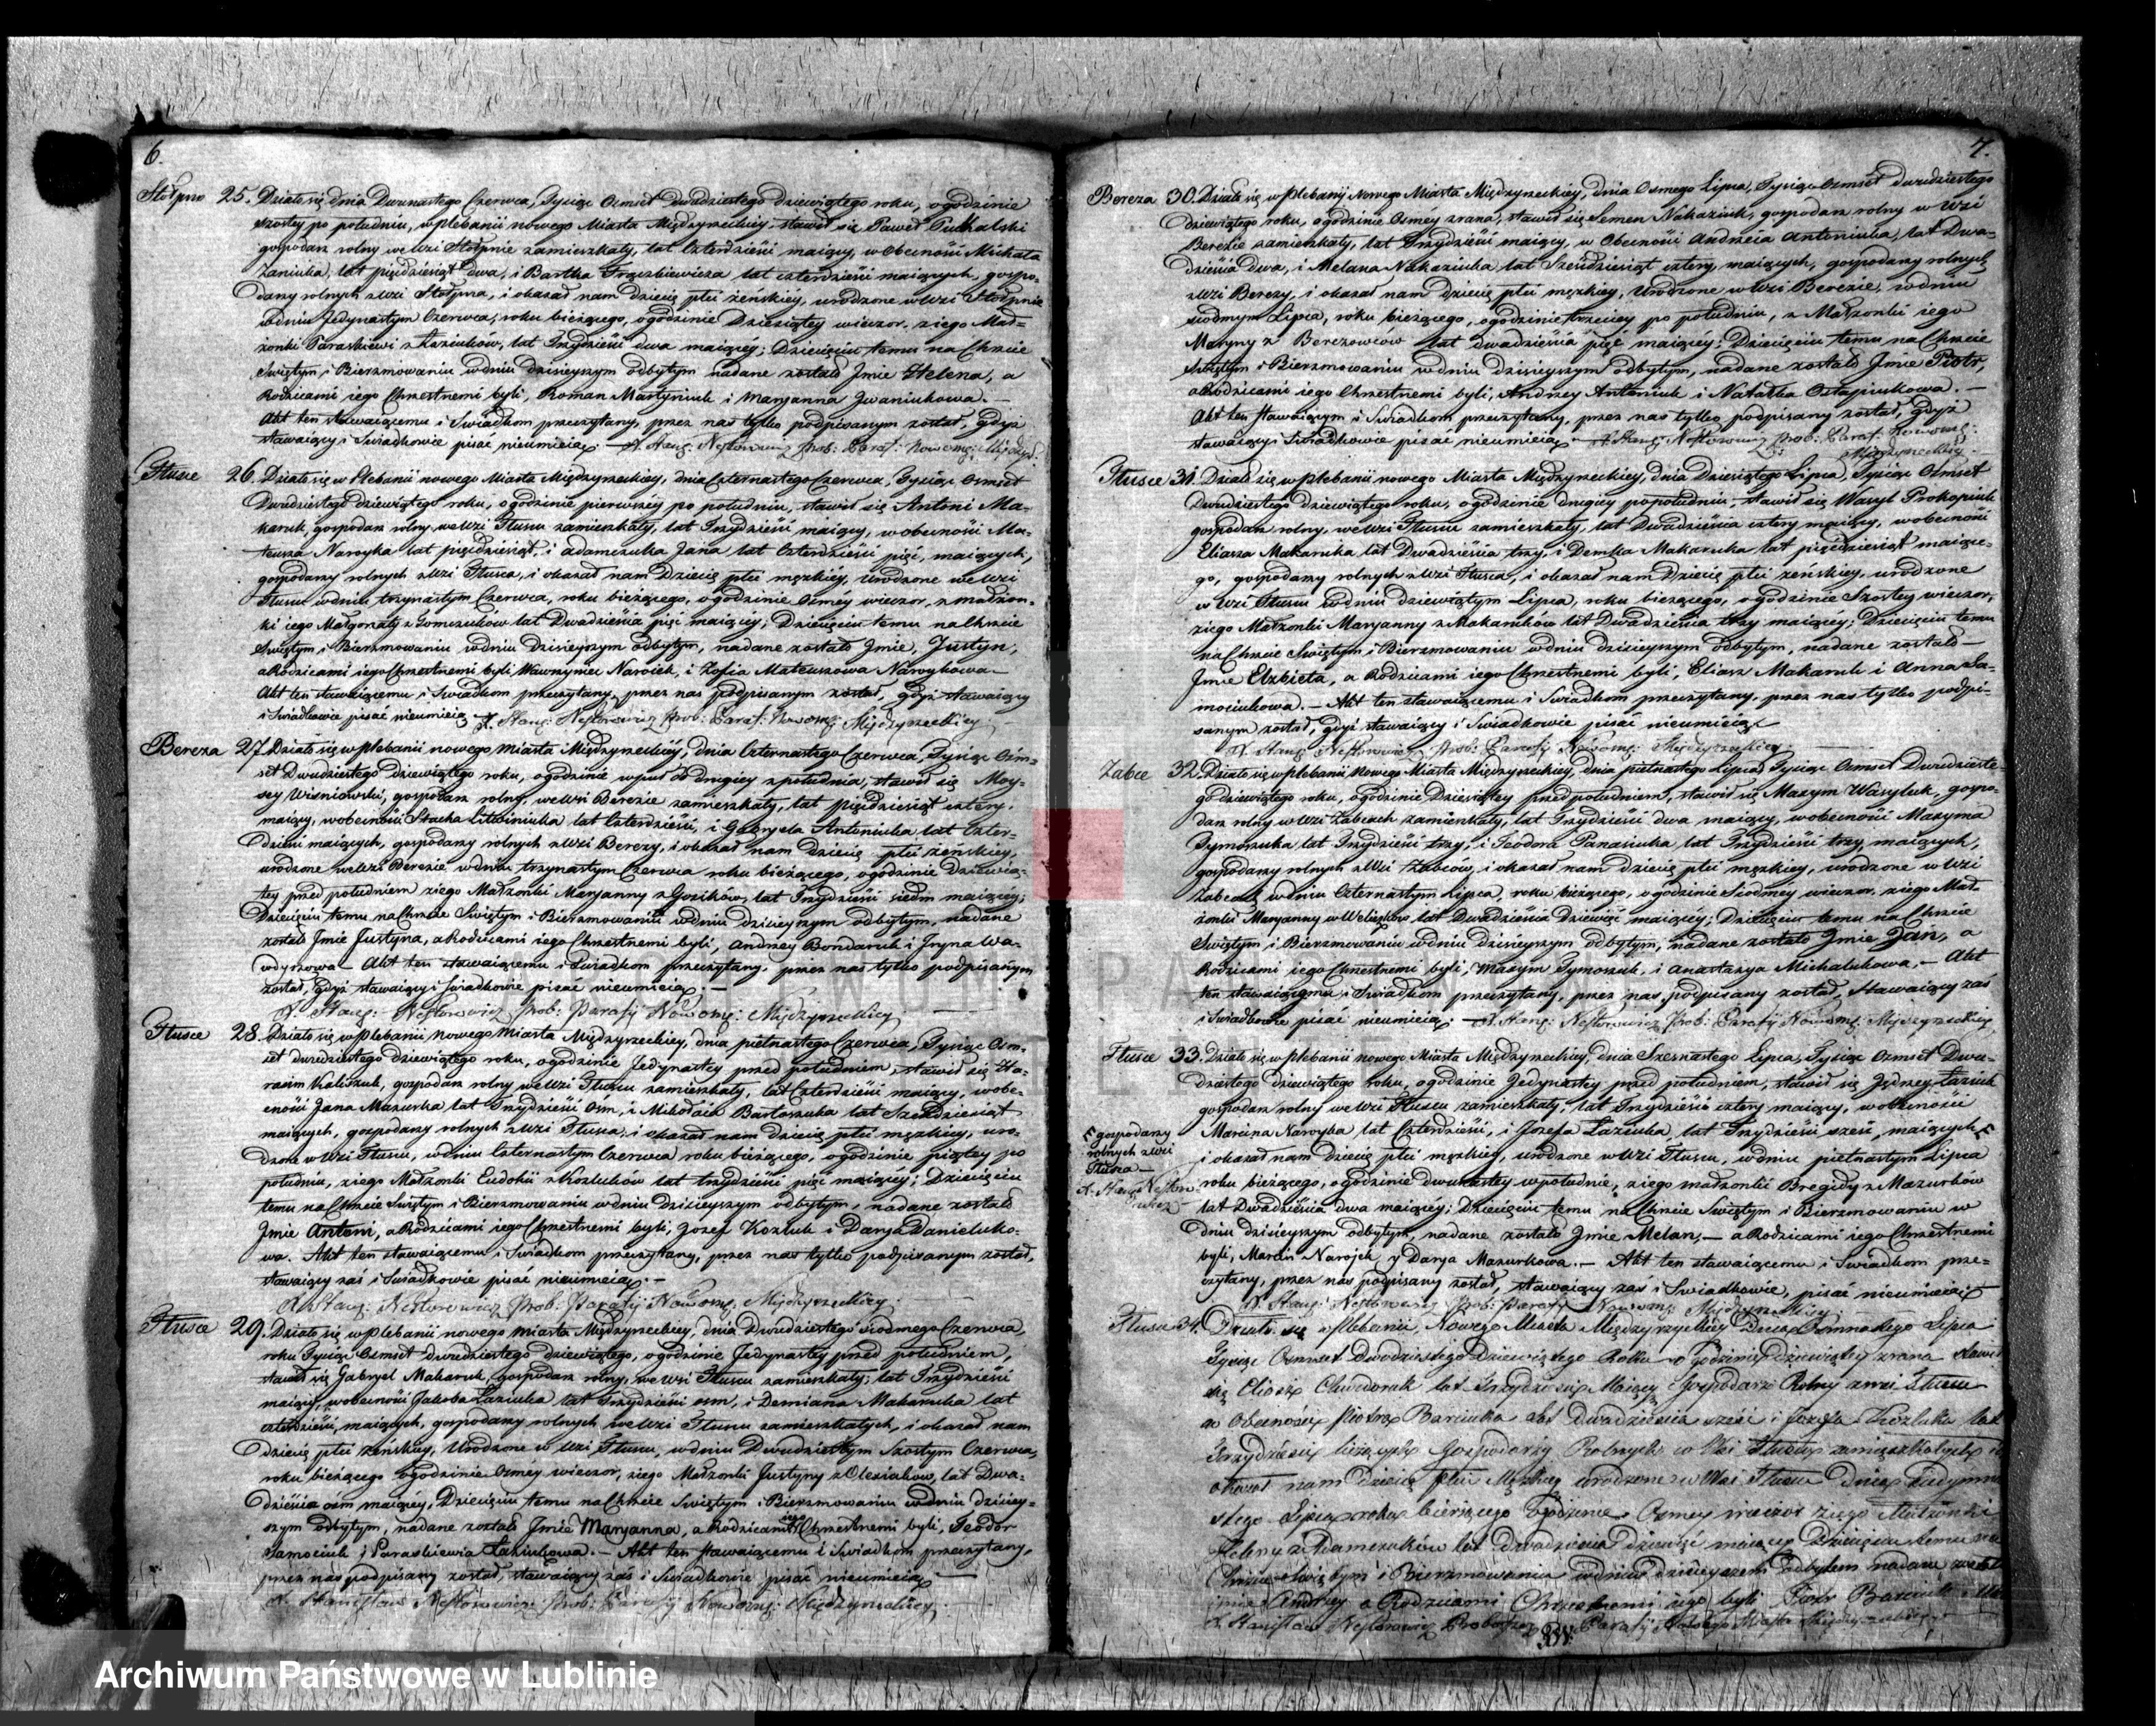 6.
Stołpno 25. Działo się dnia Dwunastego Czerwca, Tysiąc Ośmset dwudziestego dziewiątego roku, ogodzinie
szostey po południu, wplebanii nowego Miasta Międzyrzeckiey stawił się Paweł Puchalski
gospodarz rolny we Wsi Stołpnie zamieszkały, lat Czterdzieści maiący, w Obecności Michała
Zaniuka, lat pięćdziesiąt dwa, i Bartka lat czterdzieści maiących, gospo-
darzy rolnych zWsi Stołpna, i okazał nam dziecię płci żeńskiey, urodzone wWsi Stołpnie
wdniu Jedynastym Czerwca, roku bieżącego, ogodzinie Dziesiątey wieczor, ziego Mał-
żonki Paraskiewi z Kaziuków, lat Trzydzieści dwa maiącey; Dziecięciu temu na Chrzcie
Swiętym i Bierzmowaniu wdniu dzisieyszym odbytym nadane zostało Jmie Helena, a
Rodzicami iego Chrzestnemi byli, Roman Martyniuk i Maryanna Jwaniukowa. —
Akt ten stawaiącemu i Swiadkom przeczytany, przez nas tylko podpisanym został, gdyż
stawaiący i Swiadkowie pisać nieumieią. — X. Stanż: Nestorowicz Prob: Paraf: Nowomż: Międzyrz.
Tłusce 26. Działo się w Plebanii nowego Miasta Międzyrzeckiey, dnia Czternastego Czerwca, Tysiąc Ośmset
Dwudziestego dziewiątego roku, ogodzinie pierwszéy po południu, stawił się Antoni Ma-
karuk, gospodarz rolny, we Wsi Tłuscu zamieszkały, lat Trzydzieści maiący, w obecności Ma-
teusza Naroyka lat pięćdziesiąt, i adamczuka Jana lat Czterdzieści pięć, maiących,
gospodarzy rolnych zWsi Tłusca, i okazał nam Dziecię płci męzkiéy, Urodzone we Wsi
Tłuscu wdniu trzynastym Czerwca, roku bieżącego, ogodzinie Osméy wieczor, z małżon-
ki iego Małgorzaty z lat Dwadzieścia pięć maiącey; Dziecięciu temu na Chrzcie
Swiętym i Bierzmowaniu wdniu Dzisieyszym odbytym, nadane zostało Jmie, Justyn,
aRodzicami iego Chrzestnemi byli, Wawrzyniec Naroiek, i Zofia Mateuszowa Naroykowa
Akt ten stawaiącemu i Swiadkom przeczytany, przez nas podpisanym został, gdyż stawaiący
i Swiadkowie pisać nieumieią X. Stanż: Nestorowicz Prob: Paraf: Nowomż: Międzyrzeckiey.
Bereza 27. Działo się wplebanii nowego miasta Międzyrzeckiéy, dnia Czternastego Czerwca, Tysiąc Ośm-
set Dwudziestego dziewiątego roku, ogodzinie wpuł do drugiey zpołudnia, stawił się Moy-
sey Wiśniowski, gospodarz rolny, we wsi Berezie zamieszkały, lat pięćdziesiąt cztery,
maiący, wobecności Stacha Litwiniuka lat Czterdzieści, i Gabryela Antoniuka lat Czter-
dzieści maiących, gospodarzy rolnych zWsi Berezy, i okazał nam dziecię płci zenskiey,
urodzone we Wsi Berezie wdniu trzynastym Czerwca roku bieżącego, ogodzinie Dziewią-
tey przed południem ziego Małżonki Maryanny z Gosików, lat Trzydzieści siedm maiącéy;
Dziecięciu temu na Chrzcie Swiętym i Bierzmowaniu wdniu dzisieyszym odbytym, nadane
zostało Jmie Justyna, aRodzicami iego Chrzestnemi byli, Andrzey Bondaruk i Jryna Wa-
wdyszowa — Akt ten stawaiącemu i Swiadkom przeczytany, przez nas tylko podpisanym
został, gdyż stawaiący i Swiadkowie pisać nieumieią. —
X. Stanż: Nestorowicz Prob: Parafÿ Nowomż: Międzyrzeckiey
Tłusce 28. Działo się wPlebanii nowego miasta Międzyrzeckiey, dnia pietnastego Czerwca, Tysiąc Ośm-
set dwudziestego dziewiątego roku, ogodzinie Jedynastey przed południem, stawił się Ha-
rasim Kaliszuk, gospodarz rolny we Wsi Tłuscu zamieszkały, lat Czterdzieści maiący, wobe-
cności Jana Mazurka lat Trzydzieści Ośm, i Mikołaia Bartoszuka lat Sześćdziesiąt
maiących, gospodarzy rolnych zWsi Tłusca; i okazał nam dziecię płci męzkiey, uro-
dzone wWsi Tłuscu, wdniu Czternastym Czerwca roku bieżącego, ogodzinie piątey po
południu, ziego Małżonki Eudokii zKozluków lat trzydzieści pięć maiącéy; Dziecięciu
temu na Chrzcie Swiętym i Bierzmowaniu wdniu dzisieyszym odbytym, nadane zostało
Jmie Antoni, aRodzicami iego Chrzestnemi byli, Jozef Kozluk i Darya Danieluko-
wa. Akt ten stawaiącemu i Swiadkom przeczytany, przez nas tylko podpisanym został,
stawaiący zaś i Swiadkowie pisać nieumieią. —
X. Stanż: Nestorowicz Prob: Parafÿ Nowomż: Międzyrzeckiey
Tłusce 29. Działo się wplebanii nowego miasta Międzyrzeckiey, dnia Dwudziestego siodmego Czerwca,
roku Tysiąc Osmset dwudziestego dziewiątego, ogodzinie Jedynastey przed południem,
stawił się Gabryel Makaruk, gospodarz rolny, we Wsi Tłuscu zamieszkały, lat Trzydzieści
maiący, wobecności Jakoba Łaziuka lat trzydzieści osm, i Demiana Makaruka lat
czterdzieści, maiących, gospodarzy rolnych we Wsi Tłuscu zamieszkałych, i okazał nam
dziecię płci żeńskiey, Urodzone w Wsi Tłuscu, wdniu Dwudziestym Szostym Czerwca,
roku bieżącego ogodzinie Osméy wieczor, ziego Małżonki Justyny zOlesiaków, lat Dwa-
dzieścia ośm maiącéy, Dziecięciu temu na Chrzcie Swiętym i Bierzmowaniu wdniu dzisiey-
szym odbytym, nadane zostało Jmie Maryanna, a Rodzicami iego Chrzestnemi byli, Teodor
Samociuk i Paraskiewia Łaziukowa. — Akt ten stawaiącemu i Swiadkom przeczytany,
przez nas podpisany został, stawaiący zaś i Swiadkowie pisać nieumieią —
X. Stanisław Nestorowicz Prob: Parafÿ Nowomż: Międzyrzeckiey
7.
Bereza 30. Działo się wPlebanij Nowego Miasta Międzyrzeckiey, dnia Osmego Lipca, Tysiąc Osmset dwudziestego
dziewiątego roku, ogodzinie Osmey zrana, stawił się Semen Nakaziuk, gospodarz rolny w Wsi
Berezie zamieszkały, lat Trzydzieści maiący, w Obecności Andrzeia Antoniuka, lat Dwa-
dzieścia dwa, i Melana Nakaziuka lat Sześćdziesiąt cztery, maiących, gospodarzy rolnych
zWsi Berezy, i okazał nam dziecię płci męzkiey, Urodzone wWsi Berezie, wdniu
siodmym Lipca, roku bieżącego, ogodzinie trzeciey po południu, z Małżonki iego
Maryny z Berezowców lat dwadzieścia pięć maiącéy; Dziecięciu temu na Chrzcie
Swiętym i Bierzmowaniu wdniu dzisieyszym odbytym, nadane zostało Jmie Piotr,
aRodzicami iego Chrzestnemi byli, Andrzey Antoniuk i Natalka Ostapiukowa. —
Akt ten stawaiącym i Swiadkom przeczytany, przez nas tylko podpisany został, gdyż
stawaiący i Swiadkowie pisać nieumieią X. Stanż: Nestorowicz Prob: Paraf: Nowomż:
Międzyrzeckiey.
Tłusce 31. Działo się wplebanii nowego Miasta Międzyrzeckiey, dnia Dziesiątego Lipca, Tysiąc Osmset
Dwudziestego dziewiątego roku, ogodzinie drugiey popołudniu, stawił się Wasyl Prokopiuk
gospodarz rolny, we Wsi Tłuscu zamieszkały, lat Dwadzieścia cztery maiący, wobecności
Eliasza Makaruka lat Dwadzieścia trzy, i Demka Makaruka lat pięćdziesiąt maiące-
go, gospodarzy rolnych zWsi Tłusca, i okazał nam dziecię płci żeńskiey, urodzone
w Wsi Tłuscu wdniu dziewiątym Lipca, roku bieżącego, ogodzinie Szostey wieczor,
ziego Małżonki Maryanny z Makaruków lat Dwadzieścia trzy maiącéy; Dziecięciu temu
na Chrzcie Swiętym i Bierzmowaniu wdniu dzisieyszym odbytym, nadane zostało —
Jmie Elzbieta, a Rodzicami iego Chrzestnemi byli, Eliasz Makaruk i Anna Sa-
mociukowa. — Akt ten stawaiącemu i Swiadkom przeczytany, przez nas tylko podpi-
sanym został, gdyż stawaiący i Swiadkowie pisać nieumieią
X. Stanż: Nestorowicz Prob: Parafÿ Nowomż: Międzyrzeckiey.
Zabce 32. Działo się wplebanii Nowego Miasta Międzyrzeckiey, dnia pietnastego Lipca, Tysiąc Osmset Dwudzieste-
go dziewiątego roku, ogodzinie Dziesiątey przed południem, stawił się Maxym Wasyluk, gospo-
darz rolny w Wsi Zabcach zamieszkały, lat Trzydzieści dwa maiący, wobecności Maxyma
Tymoszuka lat Trzydzieści trzy, i Teodora Panasiuka lat Trzydzieści trzy, maiących,
gospodarzy rolnych zWsi Zabców, i okazał nam dziecię płci męzkiey, urodzone w Wsi
Zabcach wdniu Czternastym Lipca, roku bieżącego, ogodzinie Siodmey wieczor, ziego Mał-
żonki Maryanny lat Dwadzieścia Dziewięć maiącéy; Dziecięciu temu na Chrzcie
Swiętym i Bierzmowaniu wdniu dzisieyszym odbytym, nadane zostało Jmie Jan, a
Rodzicami iego Chrzestnemi byli, Maxym Tymoszuk, i Anastazya Michalukowa, — Akt
ten stawaiącemu i Swiadkom przeczytany, przez nas podpisany został, Stawaiący zaś
i Swiadkowie pisać nieumieią — X. Stanż: Nestorowicz Prob: Parafÿ Nowomż: Międzyrzeckiey
Tłusce 33. Działo się wplebanii nowego Miasta Międzyrzeckiey, dnia Szesnastego Lipca, Tysiąc Osmset Dwu-
dziestego dziewiątego roku, ogodzinie Jedynastey przed południem, stawił się Jędrzey Łaziuk
gospodarz rolny we Wsi Tłuscu zamieszkały, lat Trzydzieści cztery maiący, wobecności
Marcina Naroyka lat Czterdzieści, i Jozefa Łaziuka, lat Trzydzieści sześć, maiących
gospodarzy
rolnych zwsi
Tłusca —
X. Stanż: Nestoro-
wicz
i okazał nam dziecię płci męzkiéy, urodzone wWsi Tłuscu, wdniu pietnastym Lipca
roku bieżącego, ogodzinie dwunastey wpołudnie, ziego małżonki Bregidy z Mazurków
lat Dwadzieścia dwa maiącéy; Dziecięciu temu na Chrzcie Swiętym i Bierzmowaniu w
dniu dzisieyszym odbytym, nadane zostało Jmie Melan, — a Rodzicami iego Chrzestnemi
byli, Marcin Narojek y Darya Mazurkowa. — Akt ten stawaiącemu i Swiadkom prze-
czytany, przez nas podpisany został, stawaiący zaś i Swiadkowie, pisać nieumieią
X. Stanż: Nestorowicz Prob: Parafÿ Nowomż: Międzyrzeckiey.
Tłusce 34. Działo się wPlebanii, Nowego Miasta Międzyrzyckiey Dnia Osmnastego Lipca
Tysiąc Osmset Dwudziestego Dziewiątego Roku o godzinie dziewiątey zrana stawił
się Eliasz Chwedoruk lat Trzydzieści Maiący Gospodarz Rolny zwsi Tłusca
w Obecności Piotra Barciuka lat dwadzieścia sześć i Jozefa Kozluka lat
Trzydzieści liczących Gospodarzy Rolnych w Wsi Tłuscu zamieszkałych i
okazał nam dziecię płci Męzkiey urodzone w Wsi Tłuscu Dnia
stego Lipca roku bierzącego Ogodzinie Osmey wieczor ziego Małżonki
Heleny z Adamczuków lat dwadzieścia dziewięć maiącey Dziecięciu temu na
Chrzcie Swiętym i Bierzmowaniu wdniu dzisieyszem odbytem nadane zostało
Jmie Andrzey a Rodzicami Chrzestnemi iego byli Piotr Barciuk i
X. Stanisław Nestorowicz Proboszcz Parafÿ Nowego Miasta Międzyrzeckiey
ARCHIWUM PAŃSTWOWE
W LUBLINIE
Archiwum Państwowe w Lublinie